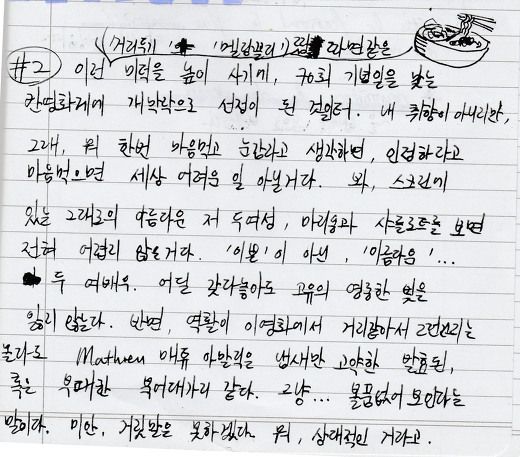 (거리두기 '와' '멜랑꼴리') 짬뽕 라면같은
#2 이런 미덕을 높이 사기에, 70회 기념일을 맞는
칸영화제에 개막작으로 선정이 된 것일터. 내 취향이 아니리만,
그래, 뭐 한번 마음먹고 눈감라고 생각하면, 인정하라고
마음먹으면 세상 어려운 일 아닐거다. 봐, 스크린에
있는 그대로의 아름다운 저 두여성, 마리옹과 샤를로트를 보면
전혀 어렵지 않을거다. '이쁜'이 아닌, '아름다움'...
두 여배우. 어딜 갖다놓아도 고유의 영롱한 빛을
잃지 않는다. 반면, 역할이 이영화에서 거리감아서
Mathieu 매튜 아말릭을 냄새만 고약한 발효된,
혹은 부패한 북어대가리 같다. 그냥... 볼품없어 보인다는
말이다. 미안, 거짓말을 못하겠다. 뭐, 상대적인 거라고.